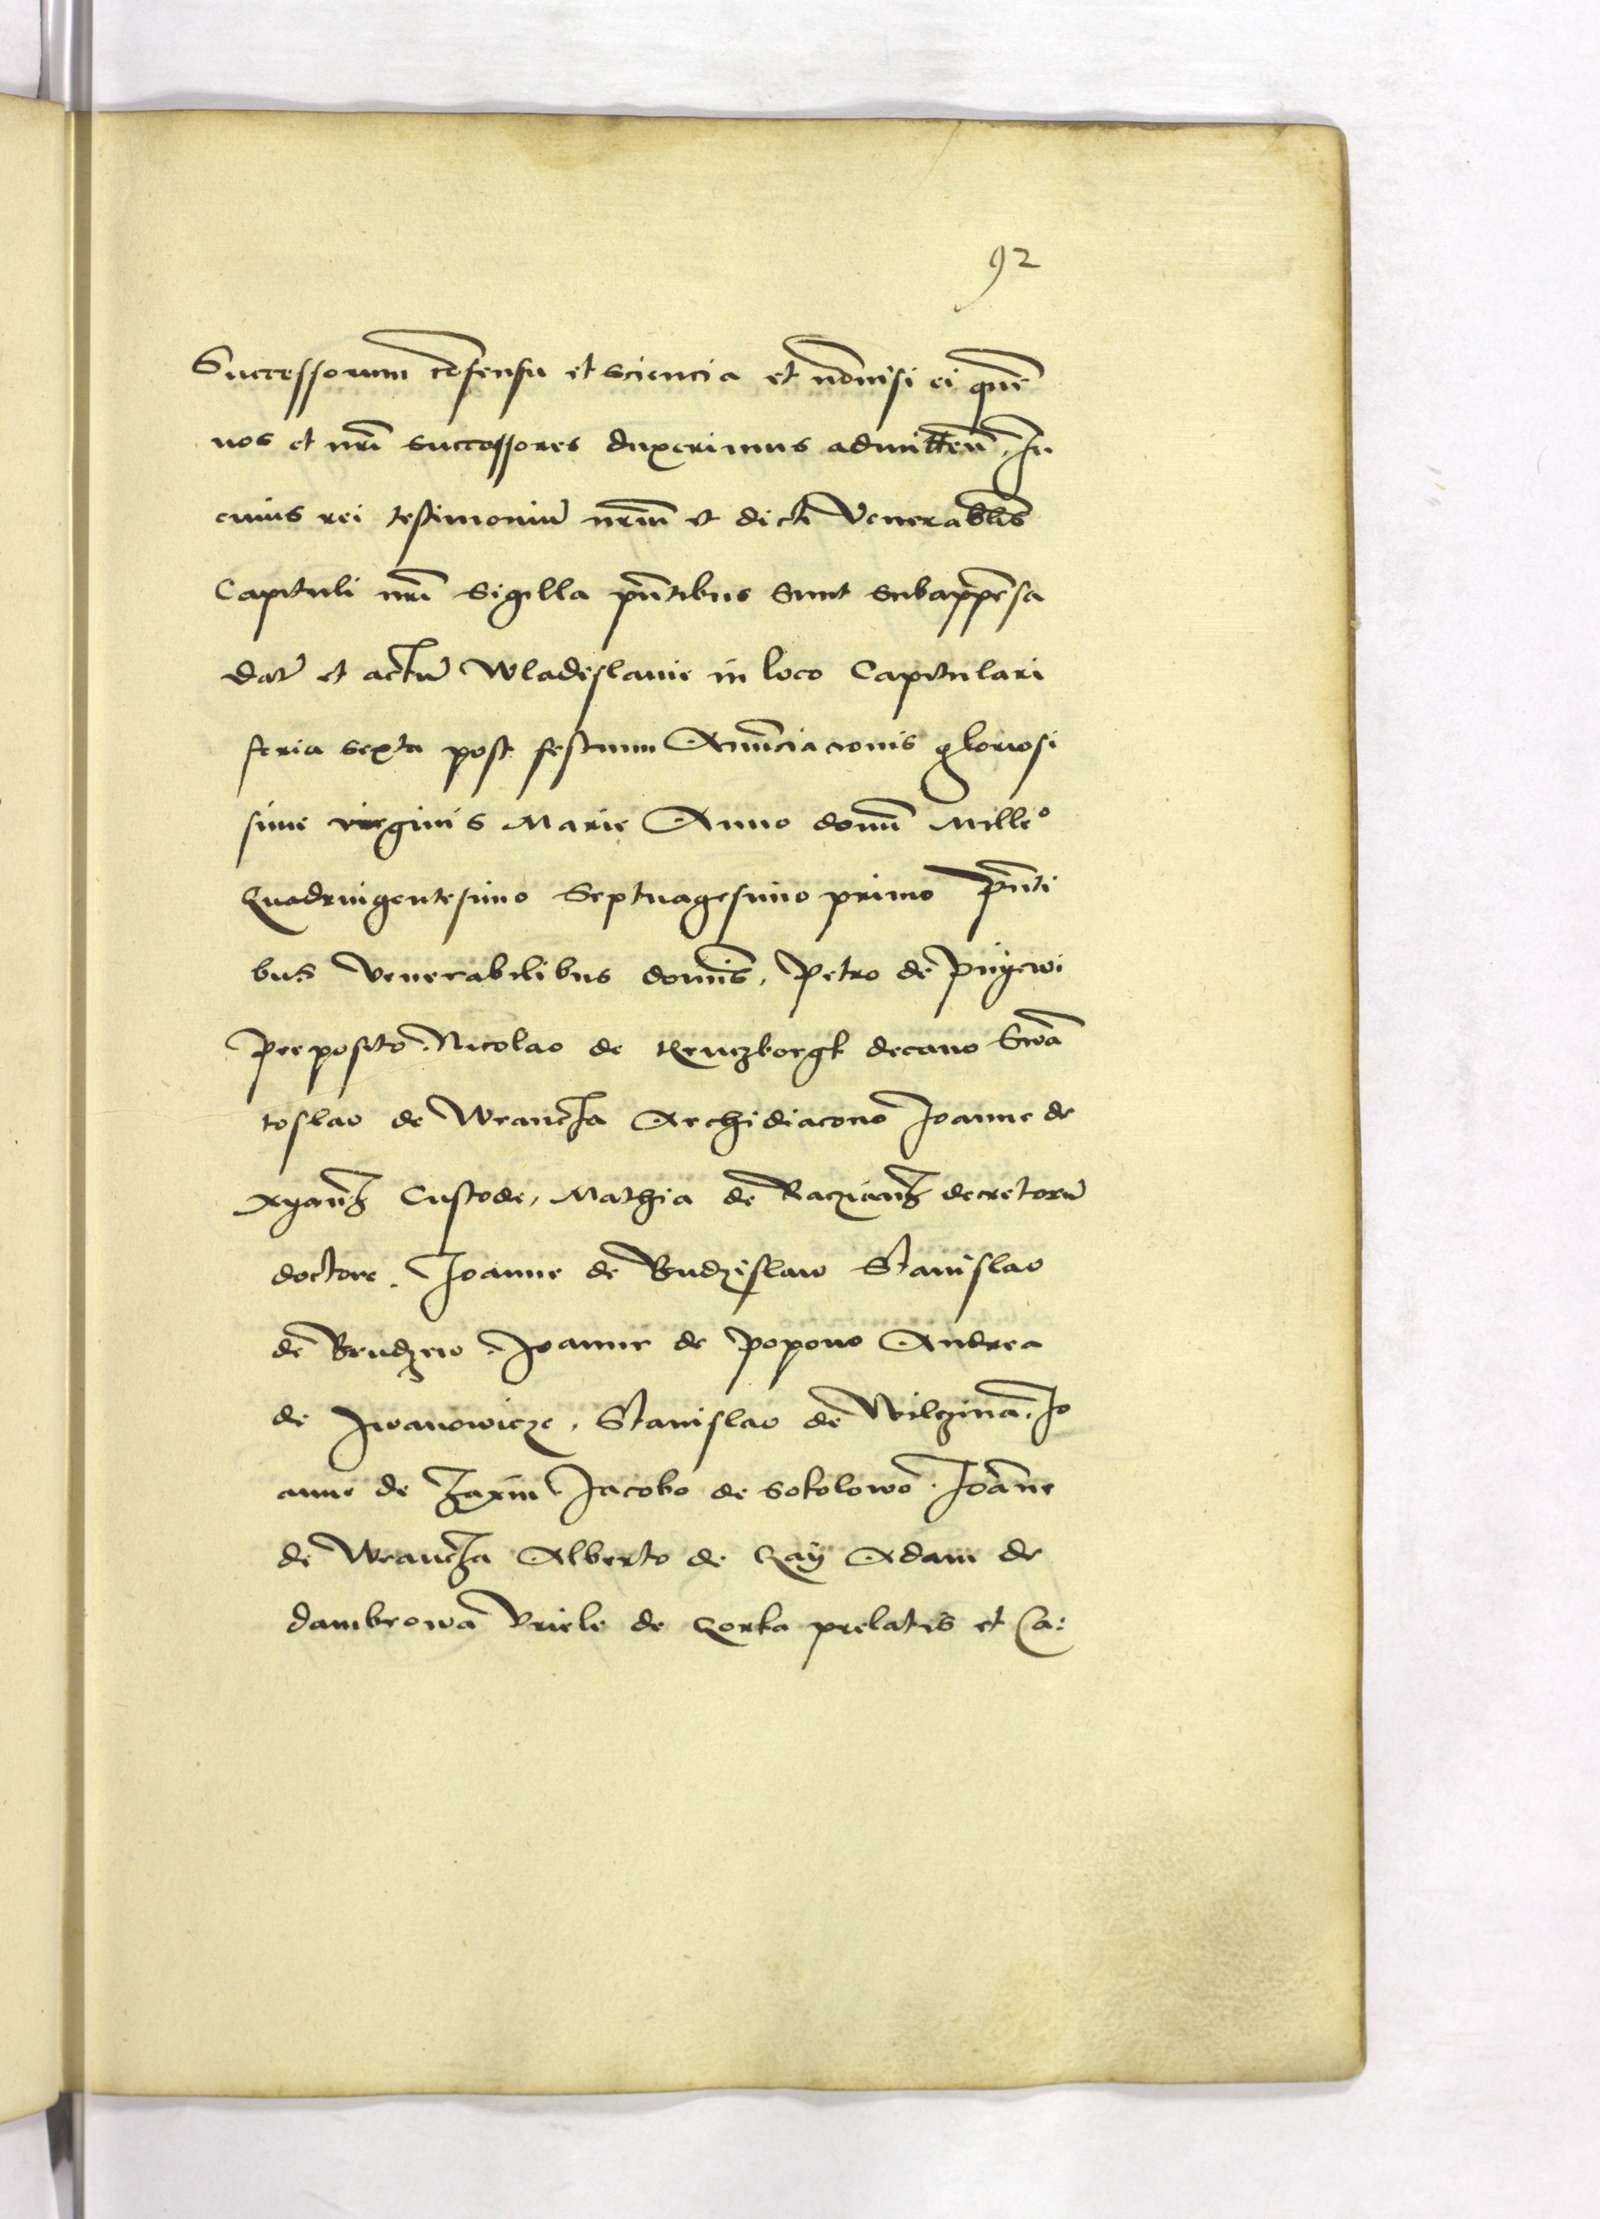 92
Successorum cōsensu et sciencia et nōnisi ei quē
nos et nrī successores duxerimus admitteñ. In
cuius rei testimoniū nrm̄ et dicti Venerablīs
Capituli nrī sigilla pn̄tibus sunt subappēsa
datū et actū Wladislauie in loco Capitulari
feria sexta post festum Anūciacionis gloriosi
sime virginis Marie Anno domī Milleᵒ
Quadringentesimo Septuagesimo primo pn̄ti
bus Venerabilibus domīs, Petro de Pnyewi
Preposito. Nicolao de Kruczborgk decano Swā
toslao de Wrancza Archidiacono Joanne de
Ryanz̄ Custode, Mathia de Raczianz̄ decretorū
doctore. Joanne de Budzislaw Stanislao
de Brudzew. Joanne de Popowo Andrea
de Iwanowicze. Stanislao de Wilczina. Jo
anne de Zaxin Jacobo de Sokolowo. Joāne
de Wrancza Alberto de Gay Adam de
dambrowa Vriele de Gorka prelatis et Ca: